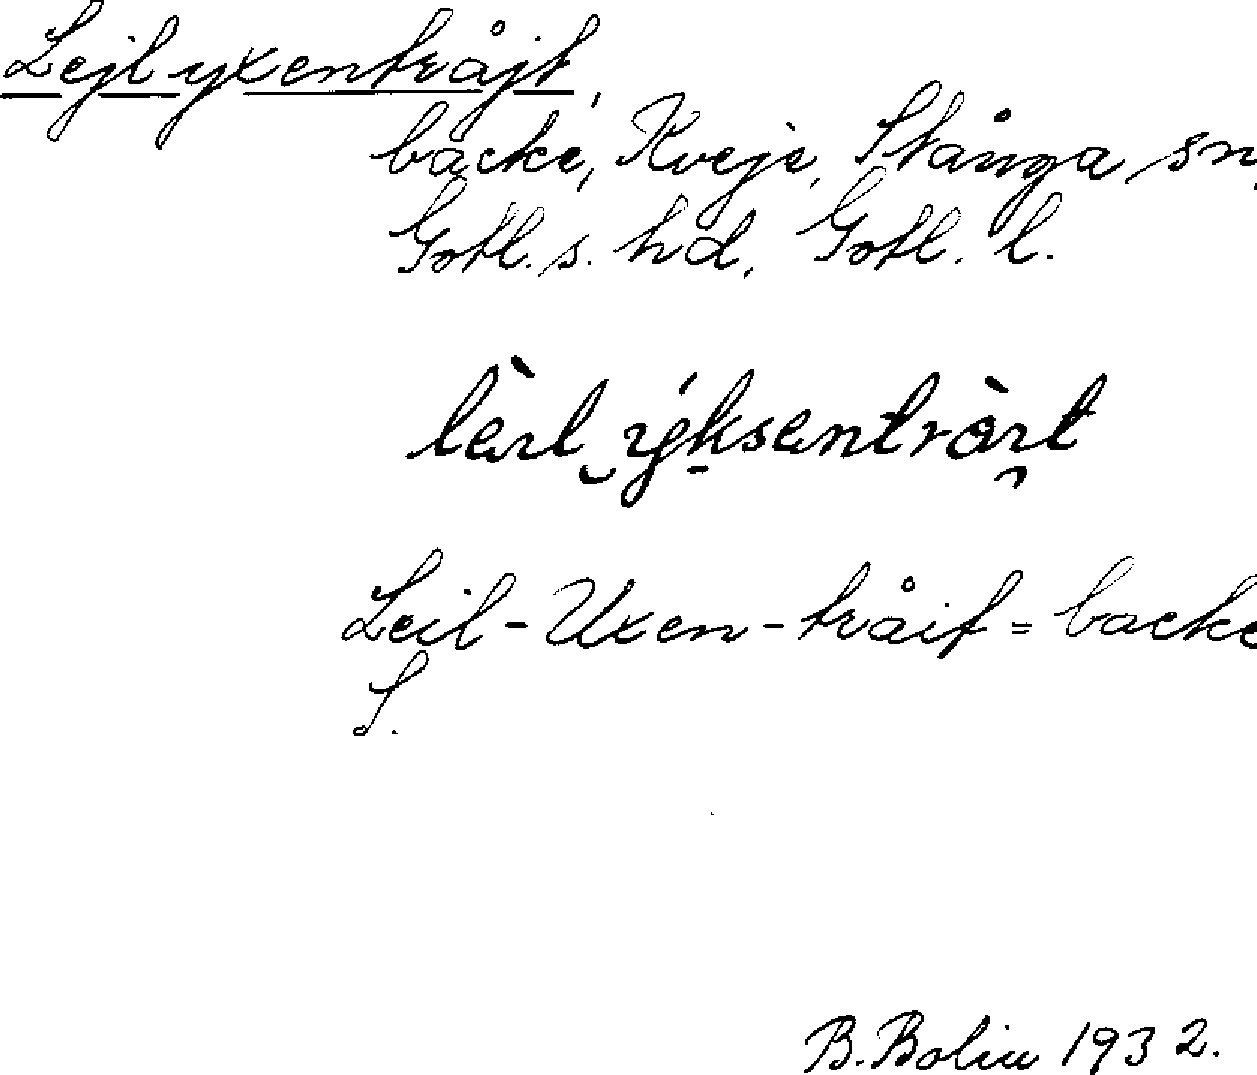 Lejl yxentråjt,
backe, Kveje, Stånga sn,
Gotl. s. hd, Gotl. l.
lèıl ýksentràıt
Leil - Uxen - tråit = backe
S.
B. Bolin 1932.